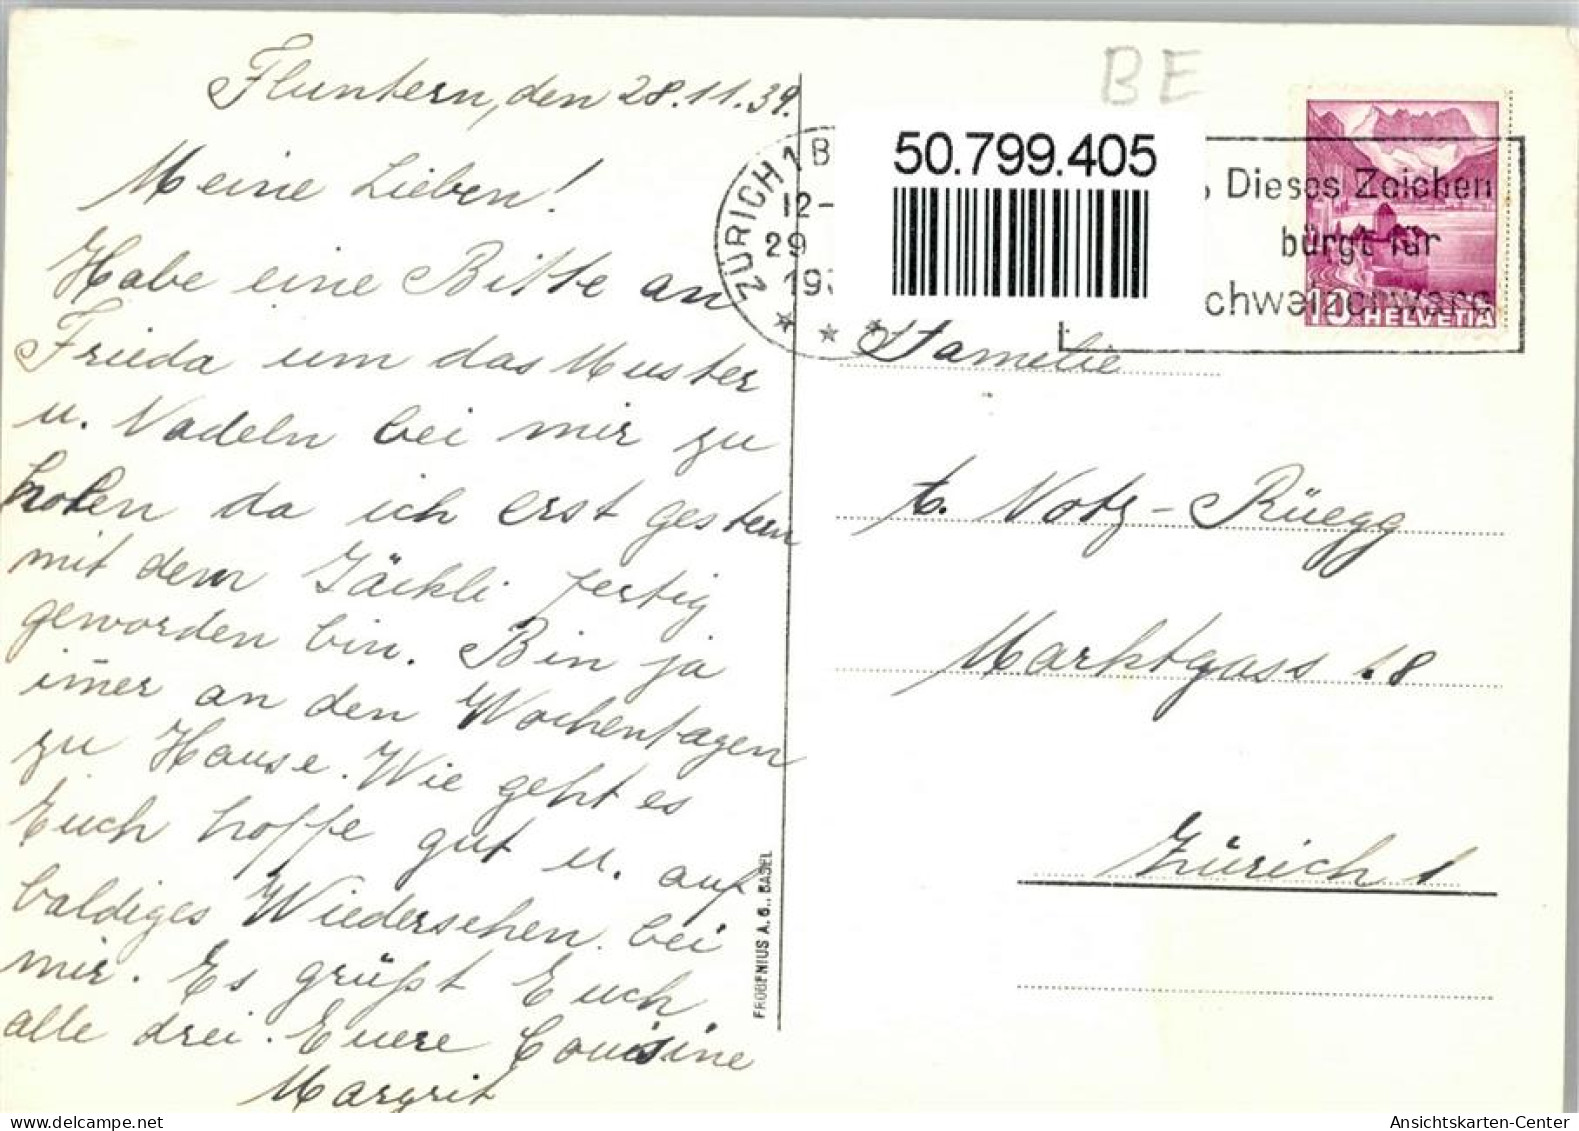 Fluntern, den 28.11.39.
Meine Lieben!
Habe eine Bitte an
Frieda um das Muster
u. Nadeln bei mir zu
holen da ich erst gestern
mit dem Jäckli fertig
geworden bin. Bin ja
im̄er an den Wochentagen
zu Hause. Wie geht es
Euch hoffe gut u. auf
baldiges Wiedersehen bei
mir. Es grüßt Euch
alle drei. Euere Cousine
Margrit
FROBENIUS A. G., BASEL
BE
ZÜRICH 1 B
12-
29
193
50.799.405
Dieses Zeichen
bürgt für
chweizerware
10 HELVETIA
Familie
Notz-Rüegg
Marktgass 18
Zürich 1
Ansichtskarten-Center